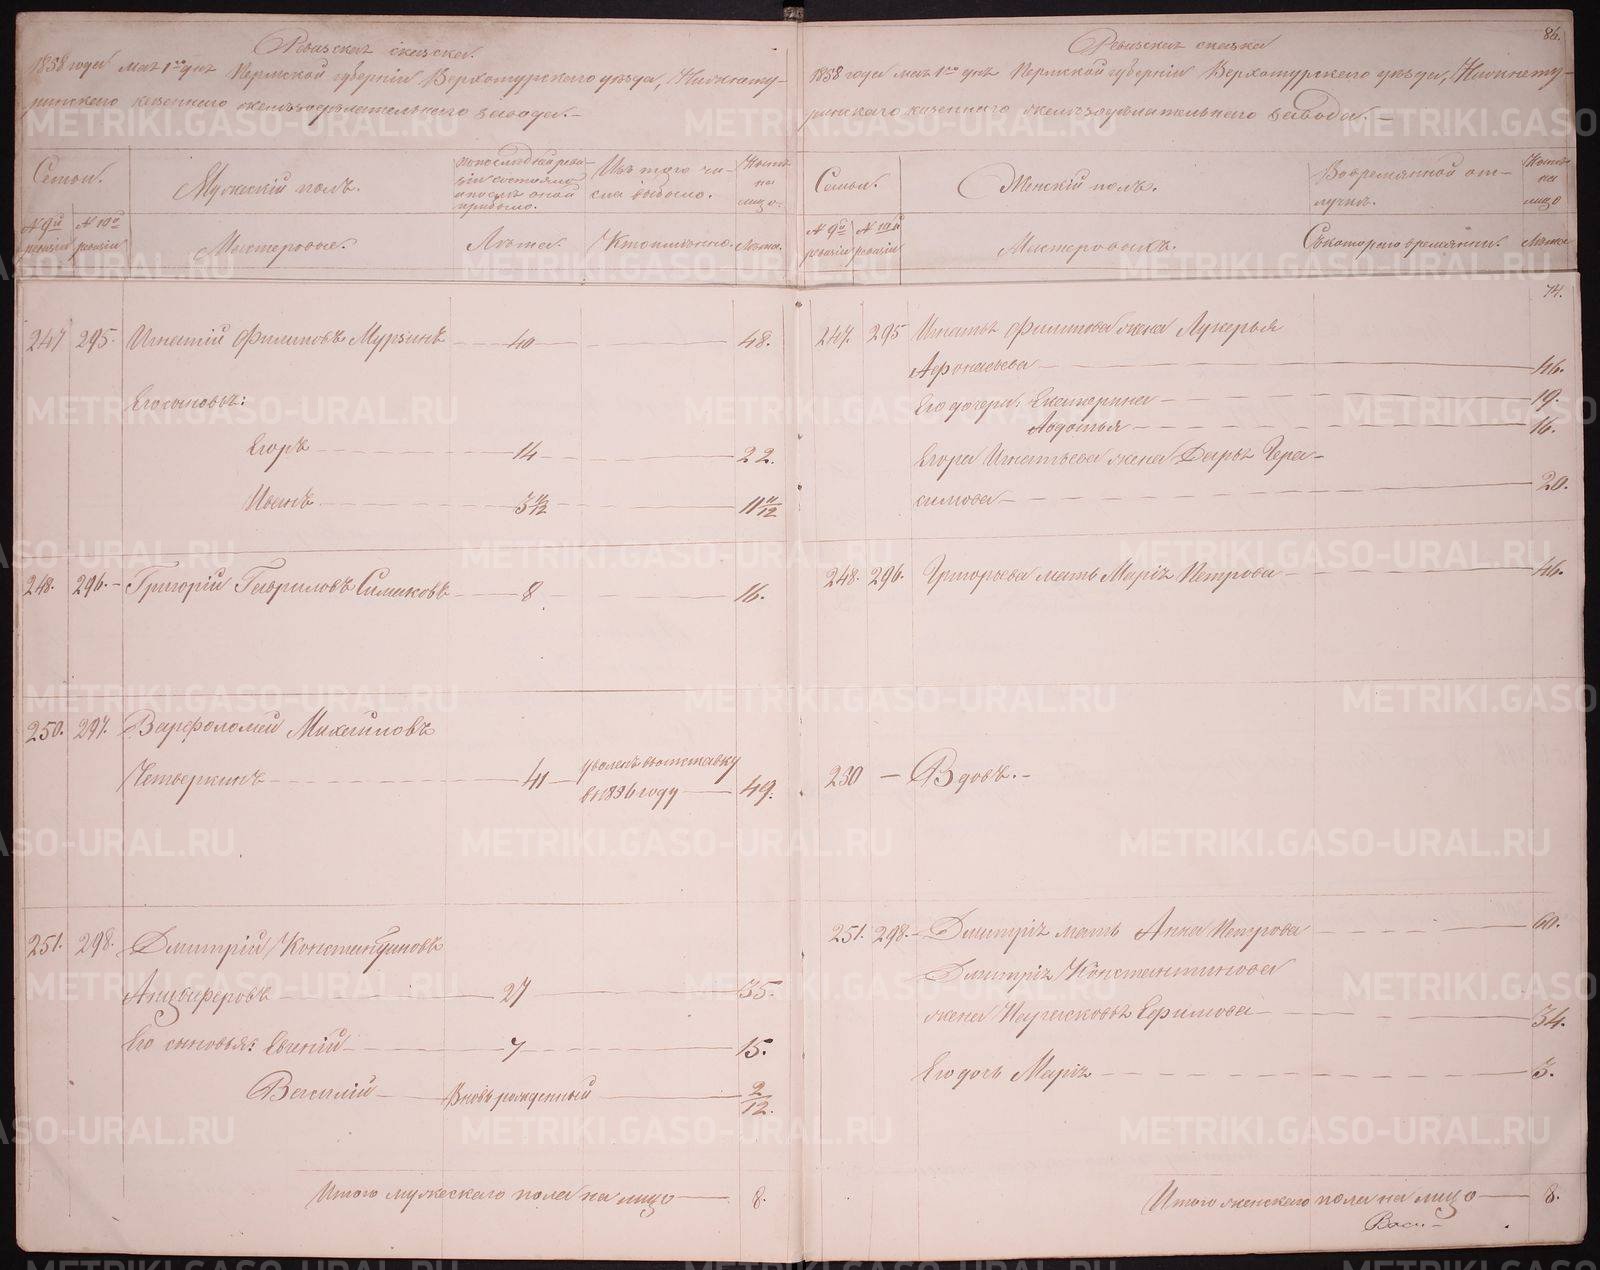 Ревизская сказка.
1858 года мая 1го дня Пермской губерніи Верхотурскаго уѣзда, Нижнету-
ринскаго казеннаго желѣзодѣлательнаго завода.
Семьи.
Мужескій полъ.
По последней реви-
зіи состояло
и послѣ оной
прибыло.
Изъ того чи-
сла выбыло.
Нынѣ
на
лицо.
№ 9й
ревизіи
№ 10й
ревизіи
Мастеровые.
Лѣта.
Когда именно.
Лѣта.
247 295. Игнатій Филиповъ Мурзинъ 40 48.
Его сыновья:
Егоръ 14 22.
Иванъ 3 11/12 11 11/12
248. 296. Григорій Гавриловъ Симаковъ 8 16.
250. 297. Варфоломей Михайловъ
Четверкинъ 41 уволенъ въ отставку
въ 1856 году 49.
251. 298. Дмитрій Константиновъ
Анцыферовъ 27 35.
Его сыновья: Евгеній 7 15.
Василій Вновь рожденный 2/12.
Итого мужескаго пола на лицо 8.
86.
Ревизская сказка
1858 года мая 1го дня Пермской губерніи Верхотурскаго уѣзда, Нижнету-
ринскаго казеннаго желѣзодѣлательнаго завода.
Семьи.
Женскій полъ.
Во временной от-
лучкѣ.
Нынѣ
на
лицо
№ 9й
ревизіи
№ 10й
ревизіи
Мастеровыхъ.
Съ котораго времяни.
Лѣта
74.
247. 295 Игнатья Филипова жена Лукерья
Афонасьева 46.
Его дочери: Екатерина 19.
Авдотья 16.
Егора Игнатьева жена Дарья Гера-
симова 20.
248. 296. Григорьева мать Марія Петрова 46.
250 Вдовъ.
251. 298. Дмитрія мать Анна Петрова 60.
Дмитрія Константинова
жена Парасковья Ефимова 34.
Его дочь Марія 3.
Итого женскаго пола на лицо 8.
METRIKI.GASO-URAL.RU